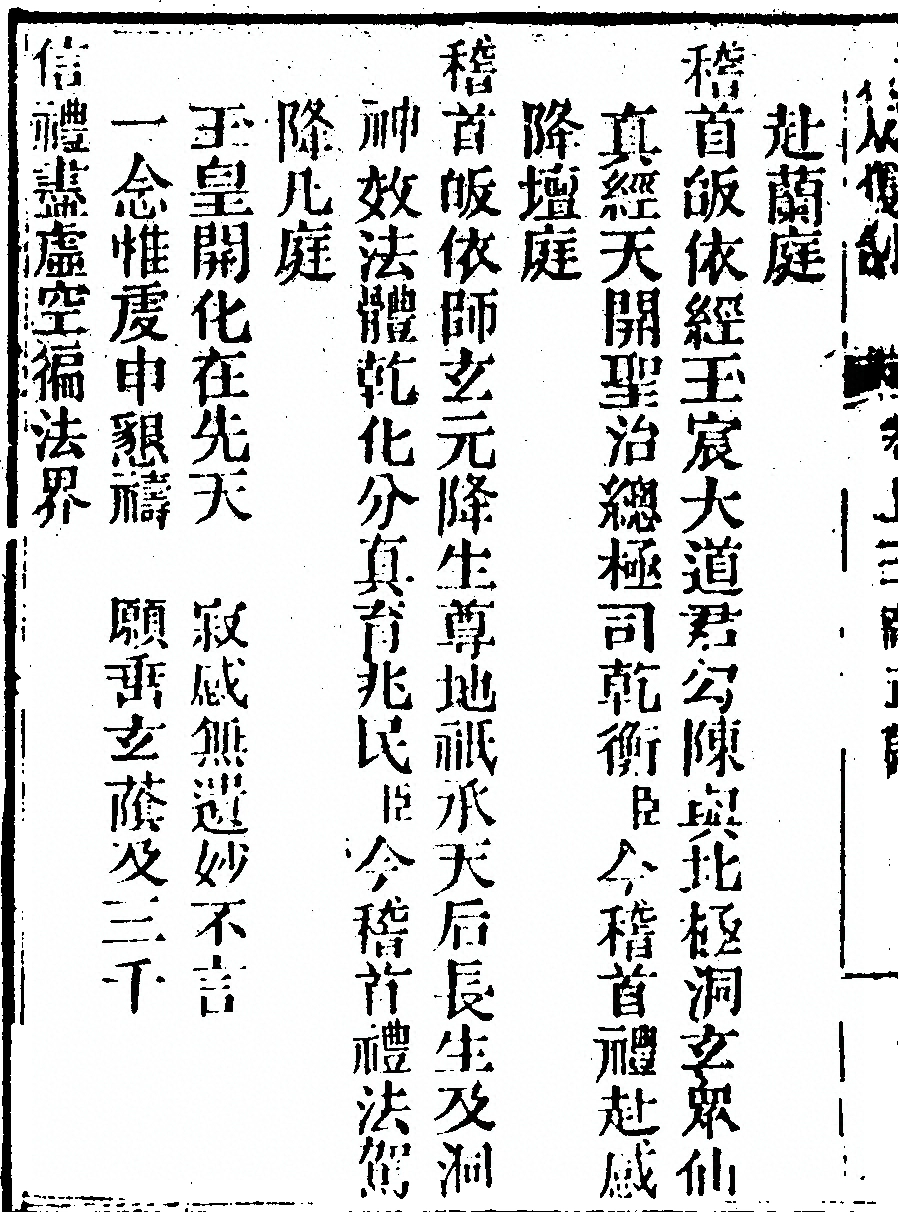 赴蘭庭
稽首皈依經玉宸大道君勾陳與北極洞玄眾仙
真經天開聖治總極司乾衡臣今稽首禮赴感
降壇庭
稽首皈依師玄元降生尊地祇承天后長生及洞
神效法體乾化分真育兆民臣今稽首禮法駕
降凡庭
玉皇開化在先天　寂感無遺妙不言
一念惟虔申懇禱　願垂玄蔭及三千
信禮盡虛空徧法界